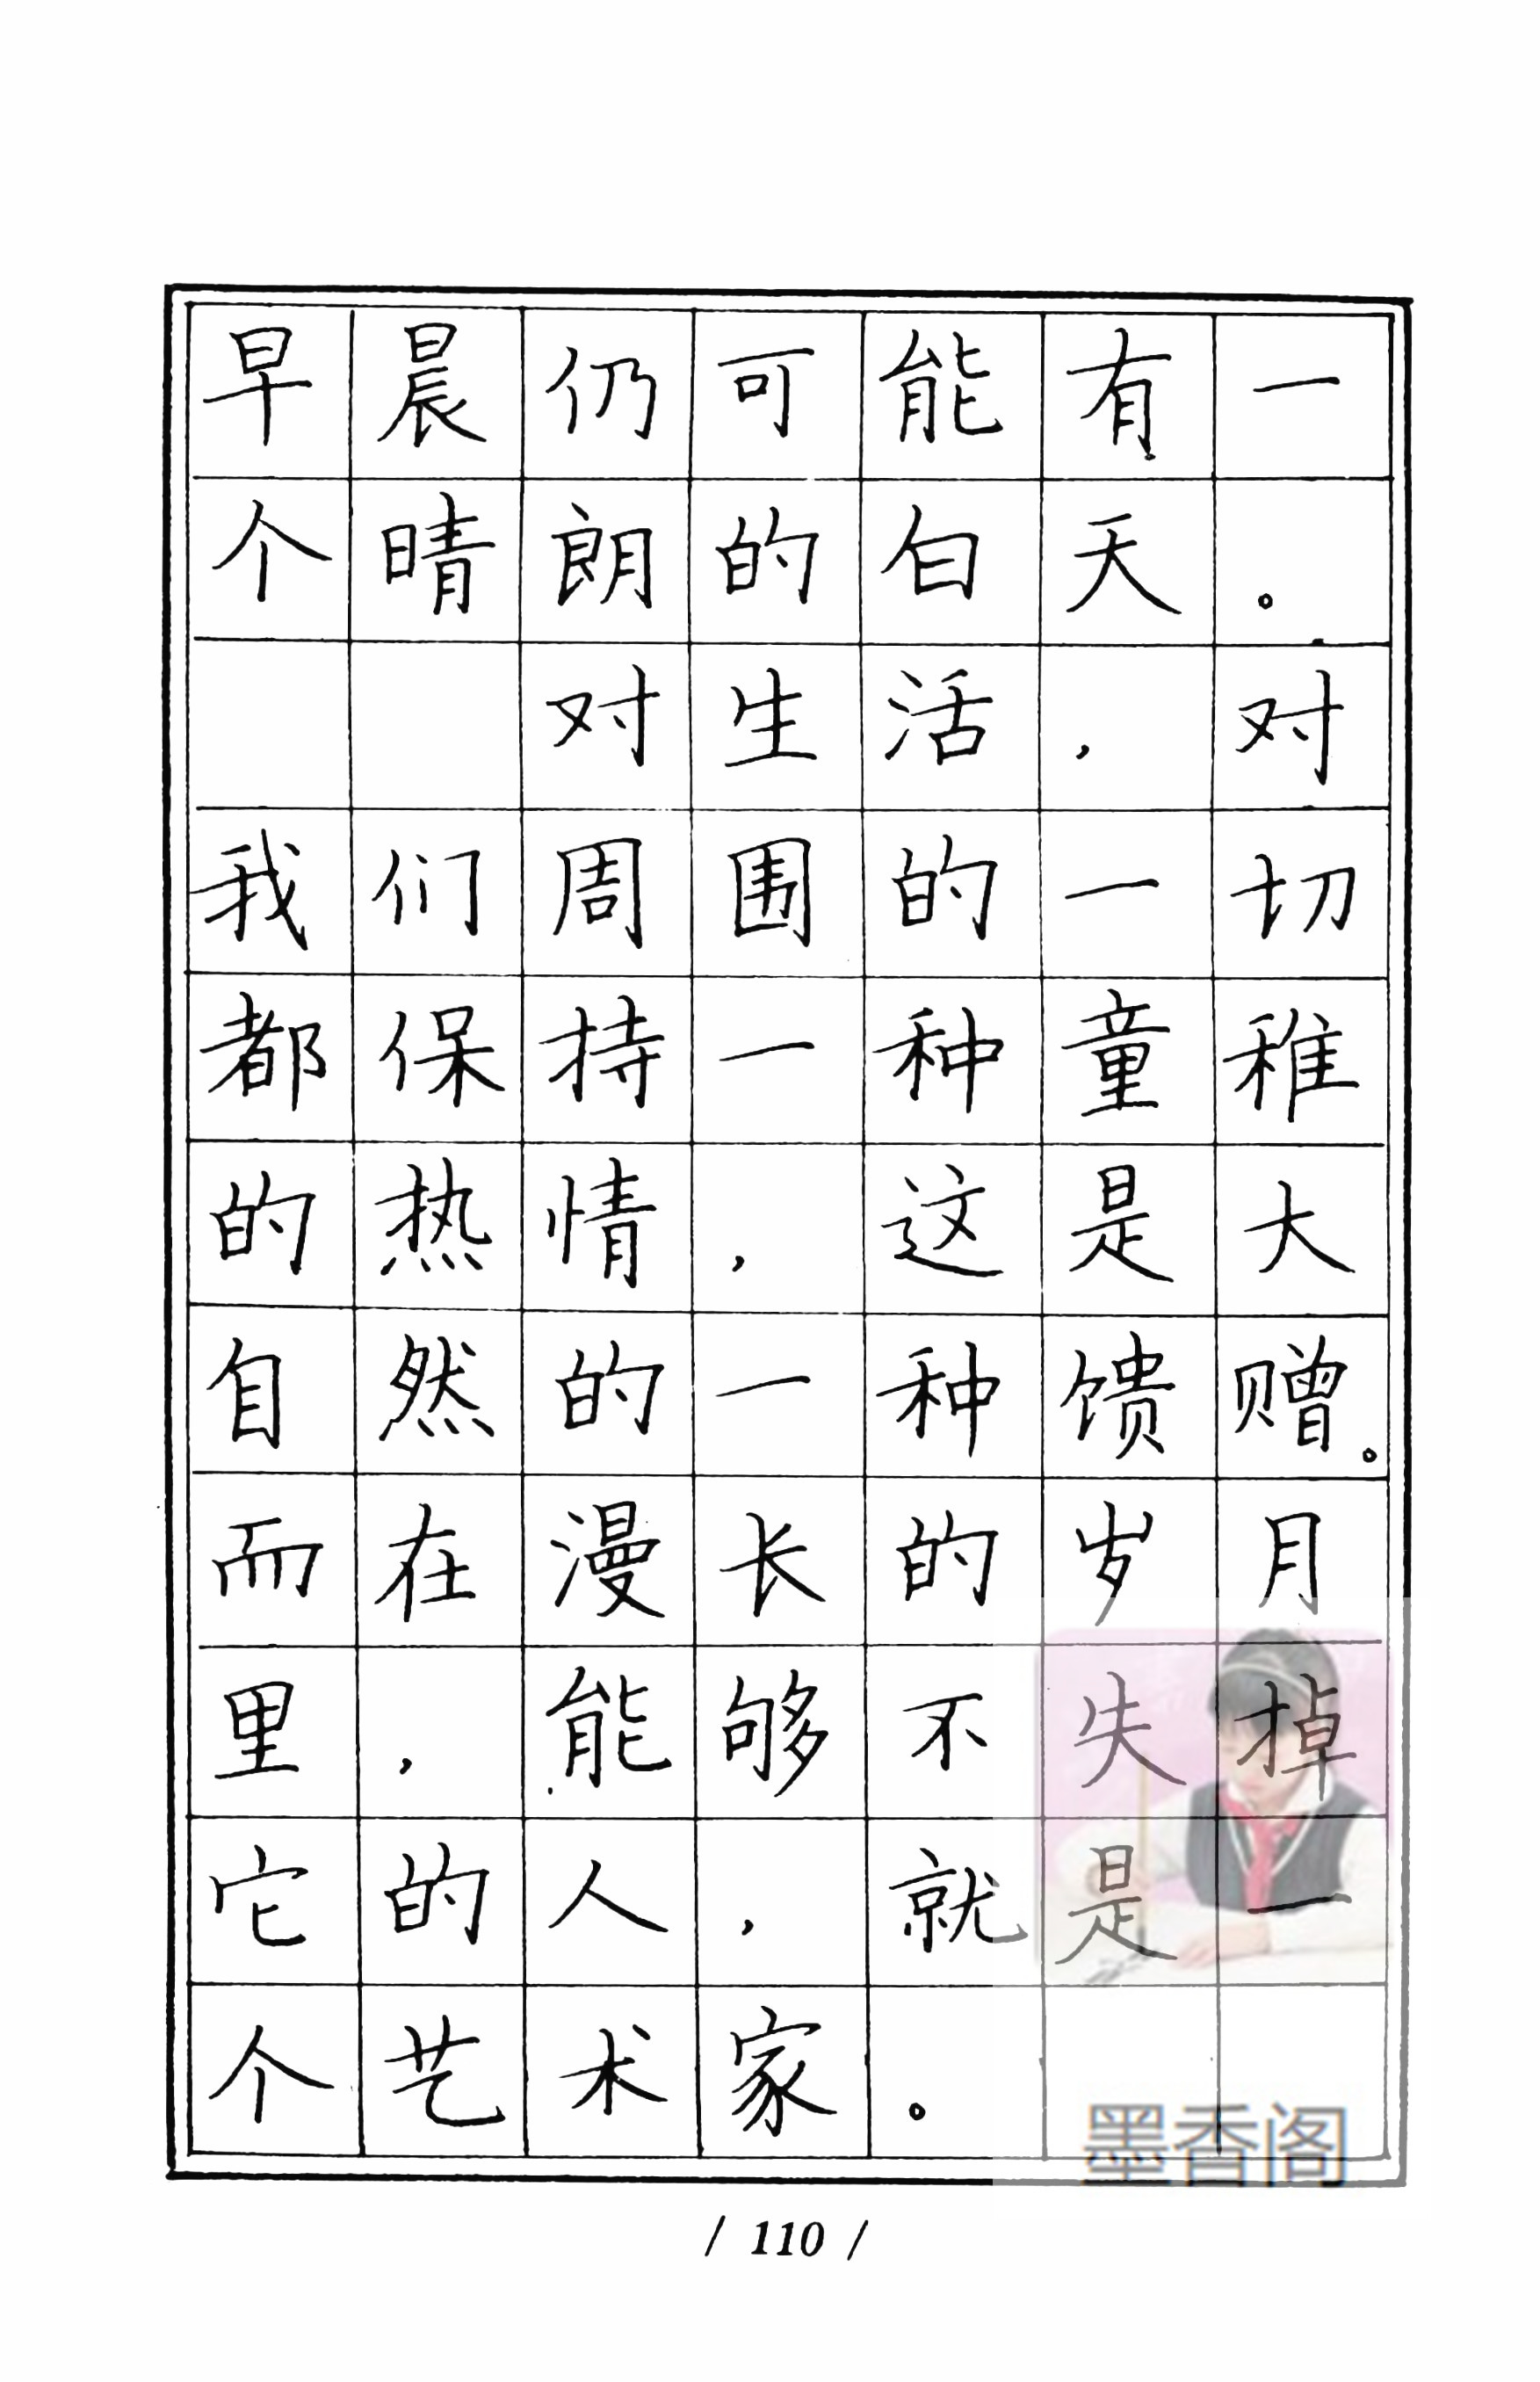 早晨仍可能有一
个晴朗的白天。
对生活，对
我们周围的一切
都保持一种童稚
的热情，这是大
自然的一种馈赠。
而在漫长的岁月
里，能够不失掉
它的人，就是一
个艺术家。
墨香阁
/ 110 /